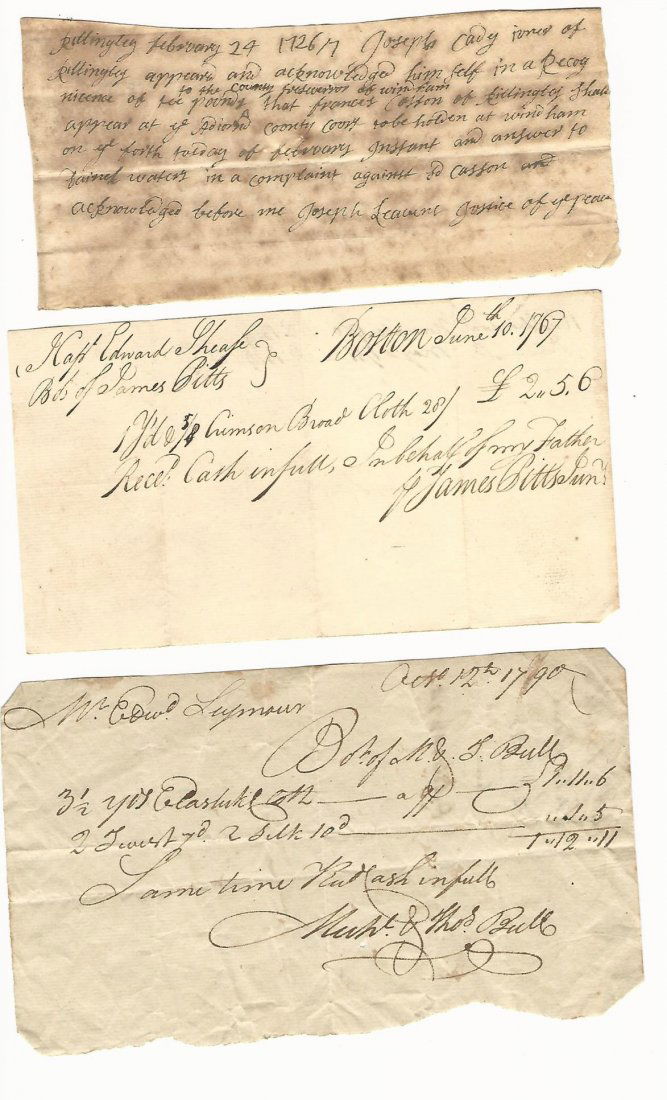 Killingley february 24 1726/7 Joseph Cady iuner of
Killingley appears and acknowledged him self in a Recog
to the County tresueror of windham
nicence of ten pounds that francis Casson of Killingley shall
appear at ye County Court to be holden at windham
on ye forth tusday of february Instant and answer to
Daniel waters in a complaint against sd Casson and
acknowledged before me Joseph Leavens Justice of ye peace
Boston June 10th. 1767
Capt Edward Sheafe
Bot of James Pitts
1 Yd & 5/8 Crimson Broad Cloth 28/ £ 2,,5.6
Rece'd Cash in full, In behalf of my Father
James Pitts Junr
Octo. 12th. 1790
Mr. Edwd. Seymour
Bot. of M & T. Bull
3½ yds Elastick Cloth — a 9/ — 1,,11,,6
2 Twist 7d. 2 Silk 10d — ,,1,,5
1,,12,,11
Same time Recd Cash in full
Michl. & Thos Bull